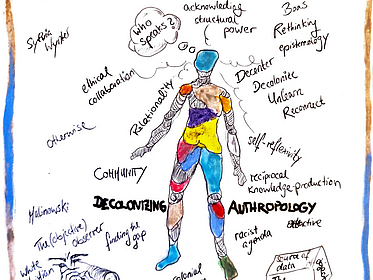 who speaks?
acknowledging
structural
power
Boas
Rethinking
epistemology
Sylvia
Wynter
ethical
collaboration
Relationality
Decenter
Decolonize
Unlearn
Reconnect
Otherwise
self-reflexivity
COMMUNITY
reciprocal
knowledge-production
DECOLONIZING ANTHROPOLOGY
Malinowski
The (objective)
observer
finding the
gap
racist
agenda
white
colonial
source of
data